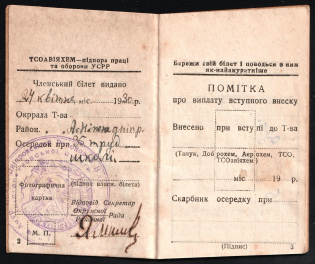 ТСОАВІЯХЕМ—підпора праці
та оборони УСРР
Членський білет видано
27 квітня міс 1930 року
Округа Т-ва
Район.
Осередок при 35 труд
школі
Фотографічна
картка
(підпис власн. білета)
Відповід Секретар
Окружної Ради
М. П.
2
Бережи свій білет і поводься в ним
як-найакуратніше
ПОМІТКА
про виплату вступного внеску
Внесено при вступі до Т-ва
(Танук, Доброхем, Аерохем, ТСО,
ТСОавіяхем)
міс 19 р.
Скарбник осередку при
(Підпис)
3